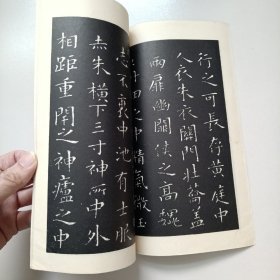 行之可長存黃庭中
人衣朱衣關門壯籥蓋
兩扉幽闕俠之高巍
丹田之中精氣微玉
志不衰中池有士服
赤朱橫下三寸神所中外
相距重閉之神廬之中